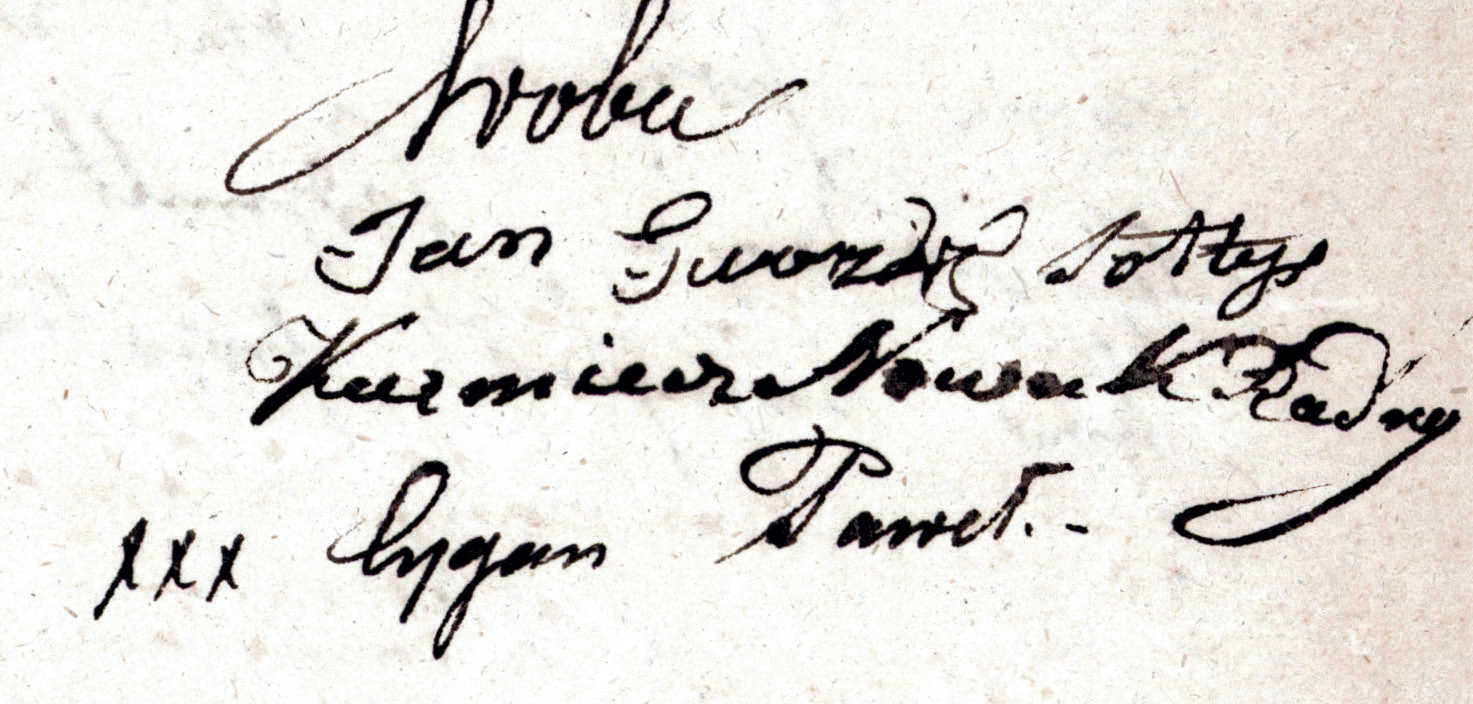 Jan Gwoźdź Sołtys
Kazmierz Nowak Radny
xxx Cygan Paweł.-